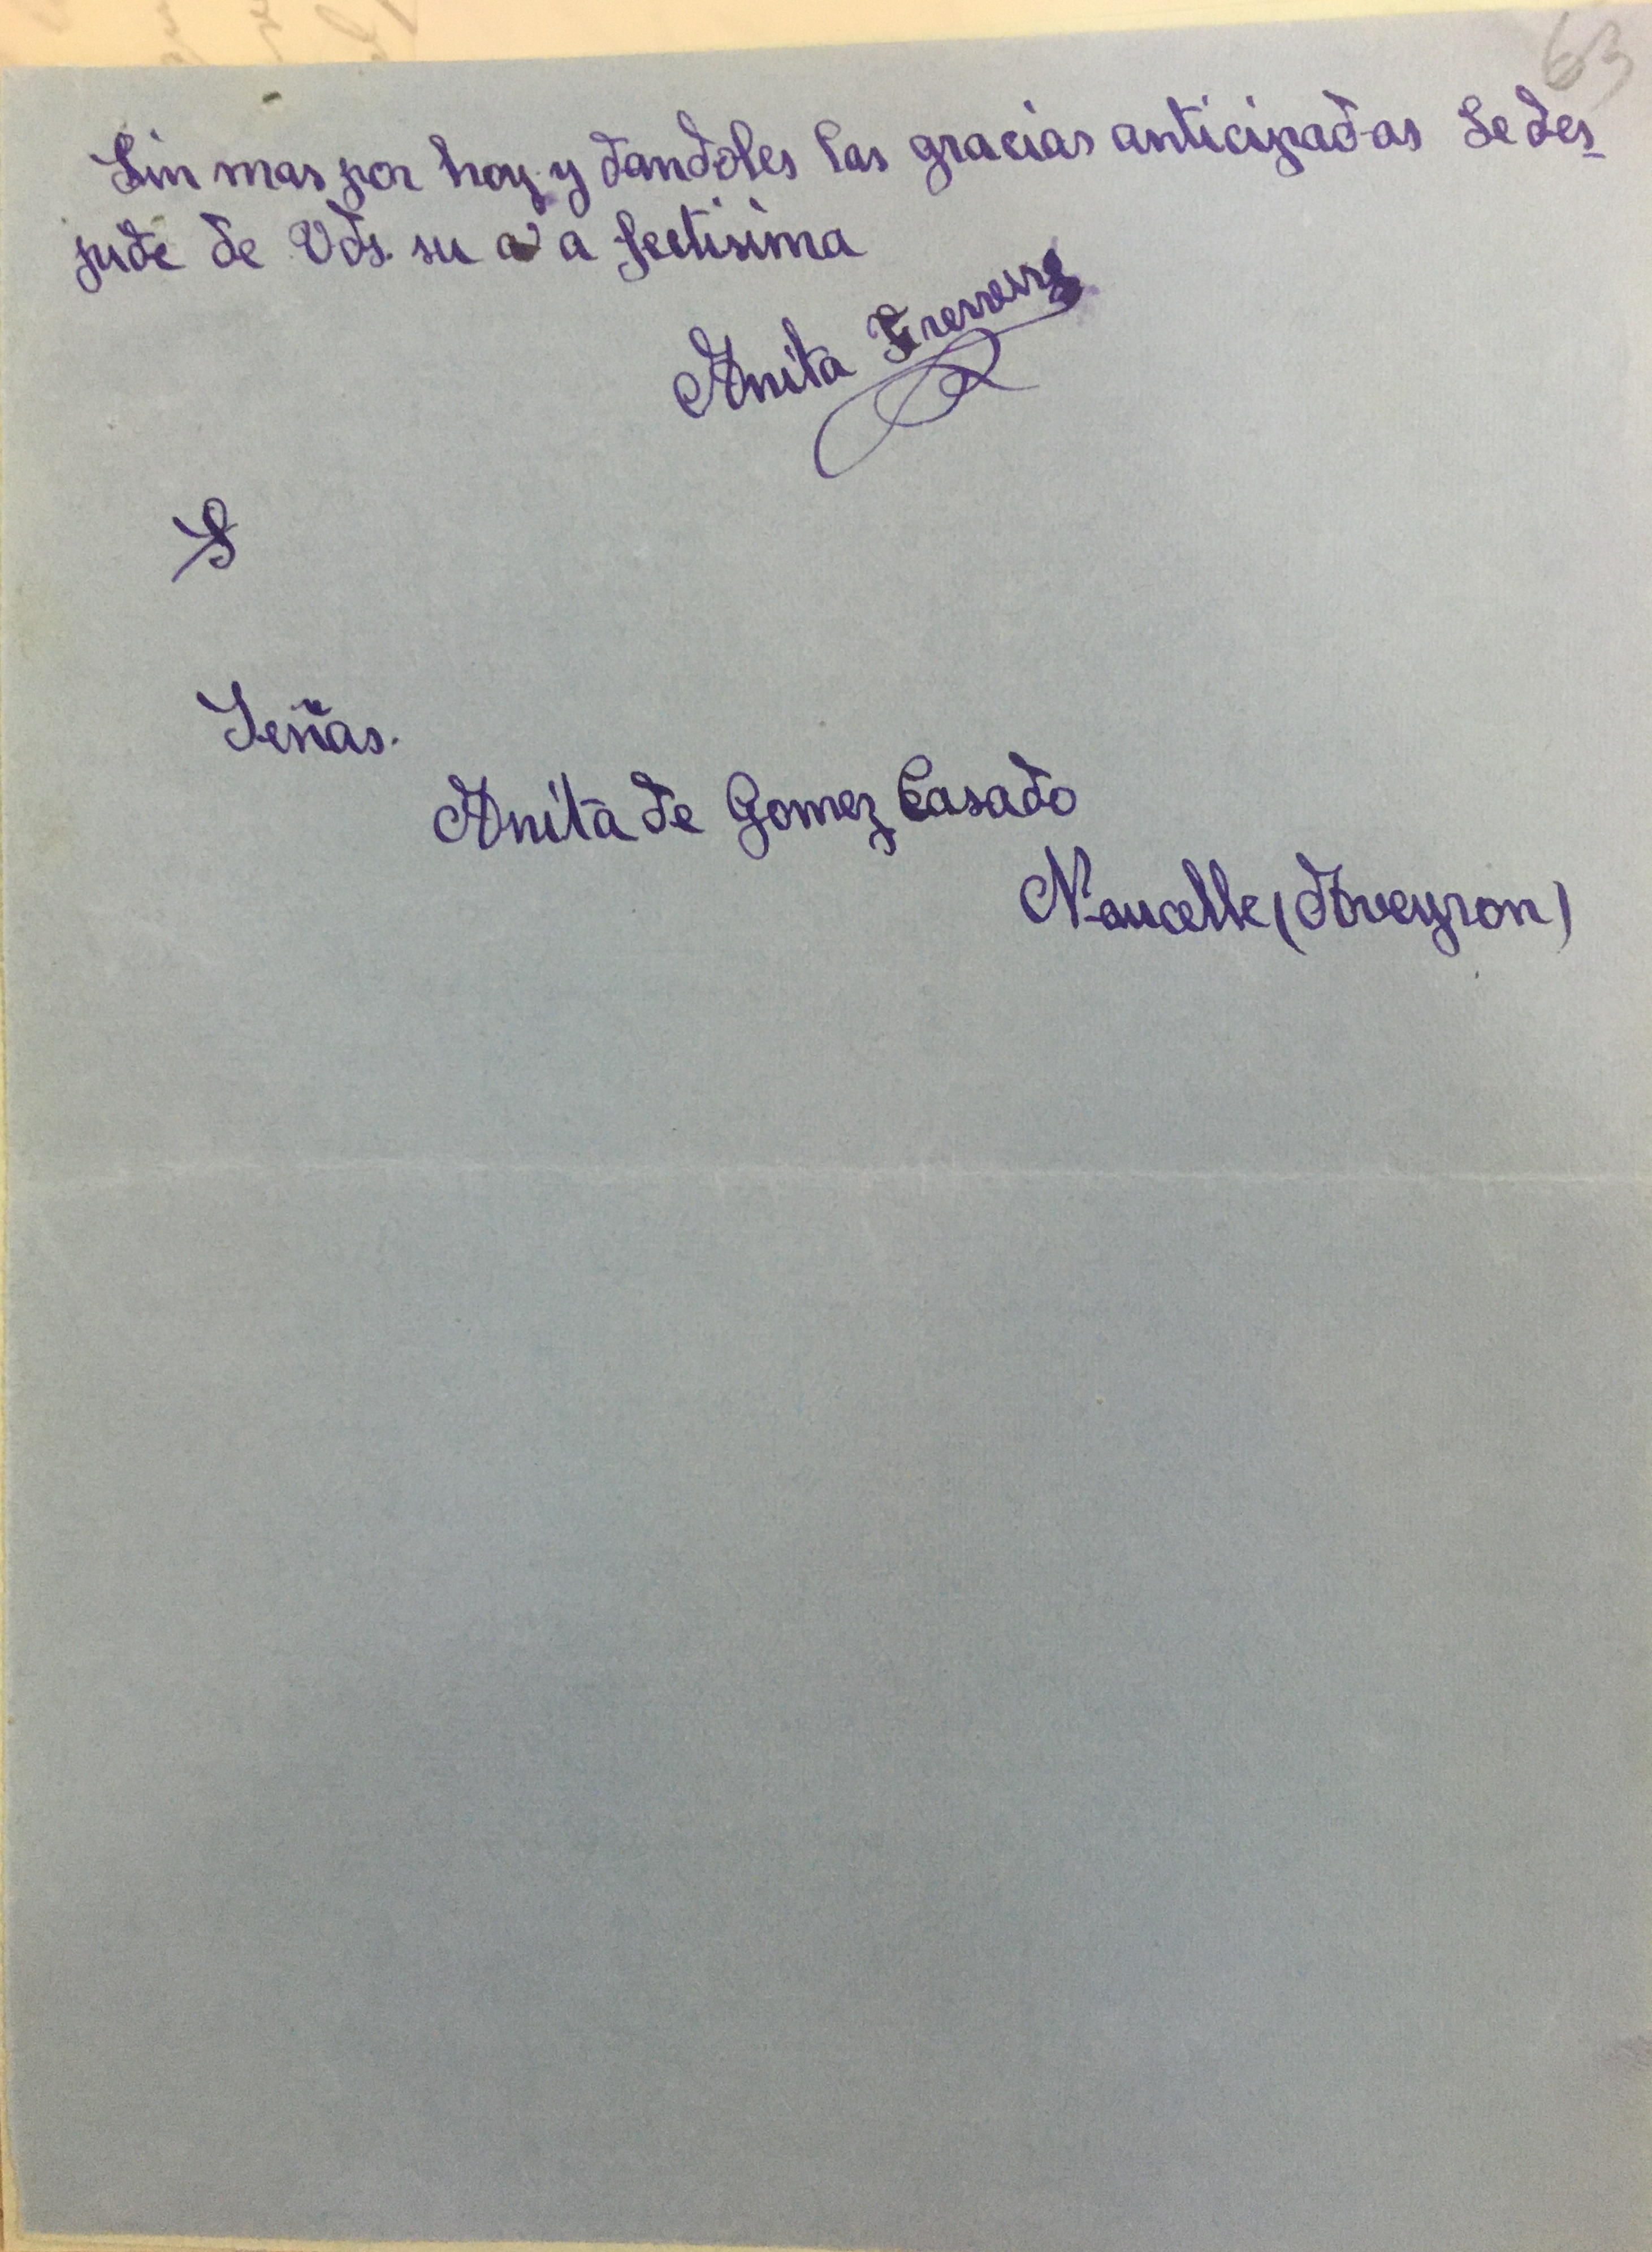 63
Sin mas por hoy y dandoles las gracias anticipadas se des-
pide de Vds. su a fectisima
Anita
Señas.
Anita de Gomez Casado
Naucelle (Aveyron)